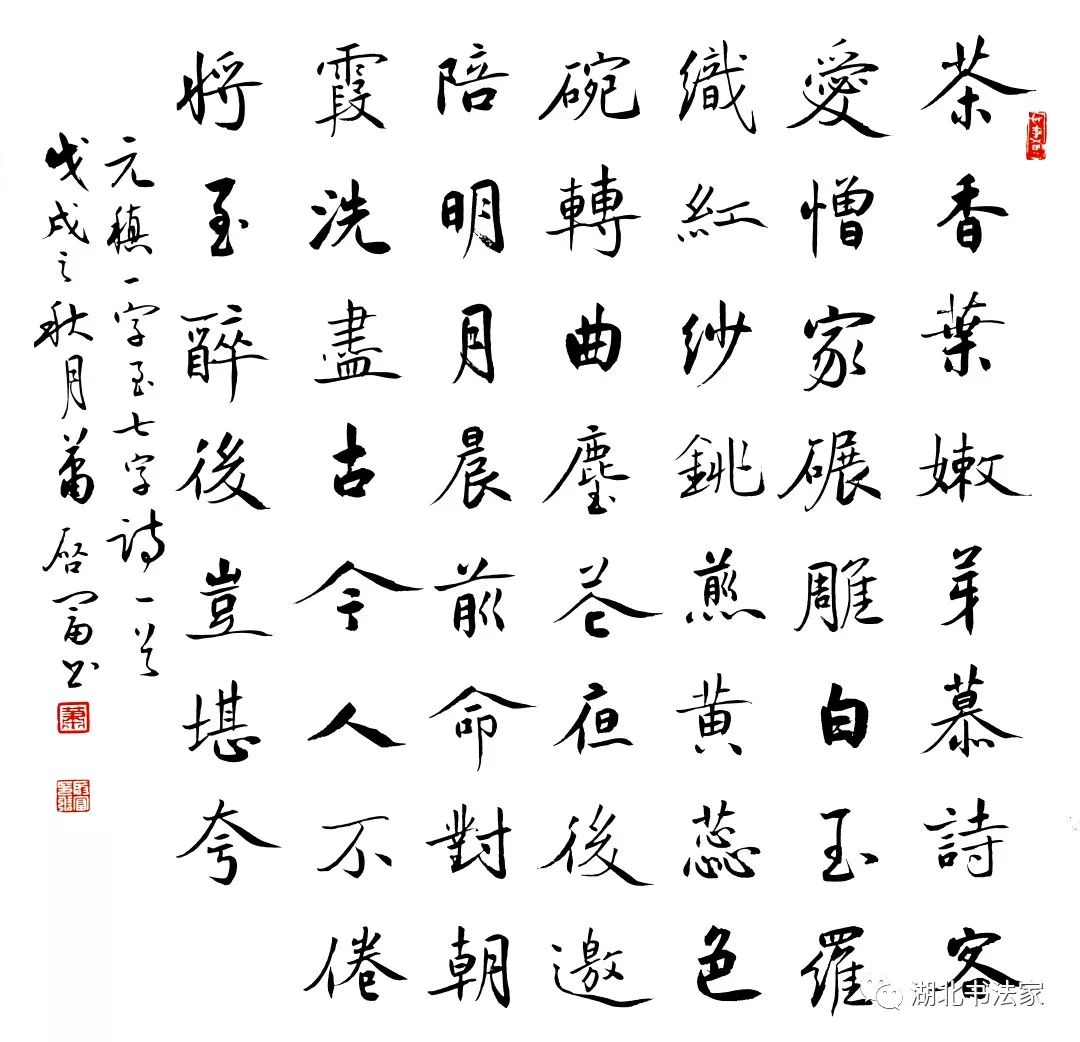 茶香葉嫩芽慕詩客
愛憎家碾雕白玉羅
織紅紗銚煎黄蕊色
碗轉曲塵花夜後邀
陪明月晨前命對朝
霞洗盡古今人不倦
將至醉後豈堪夸
元稹一字至七字诗一首
戊戌之秋月萧启富书
湖北书法家